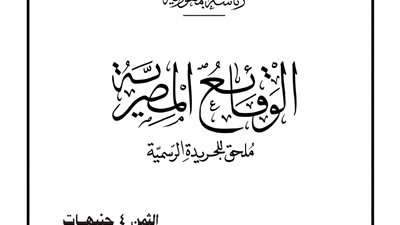 رئاسة الجمهورية
الوقائع المصرية
ملحق للجريدة الرسمية
الثمن ٤ جنيهات